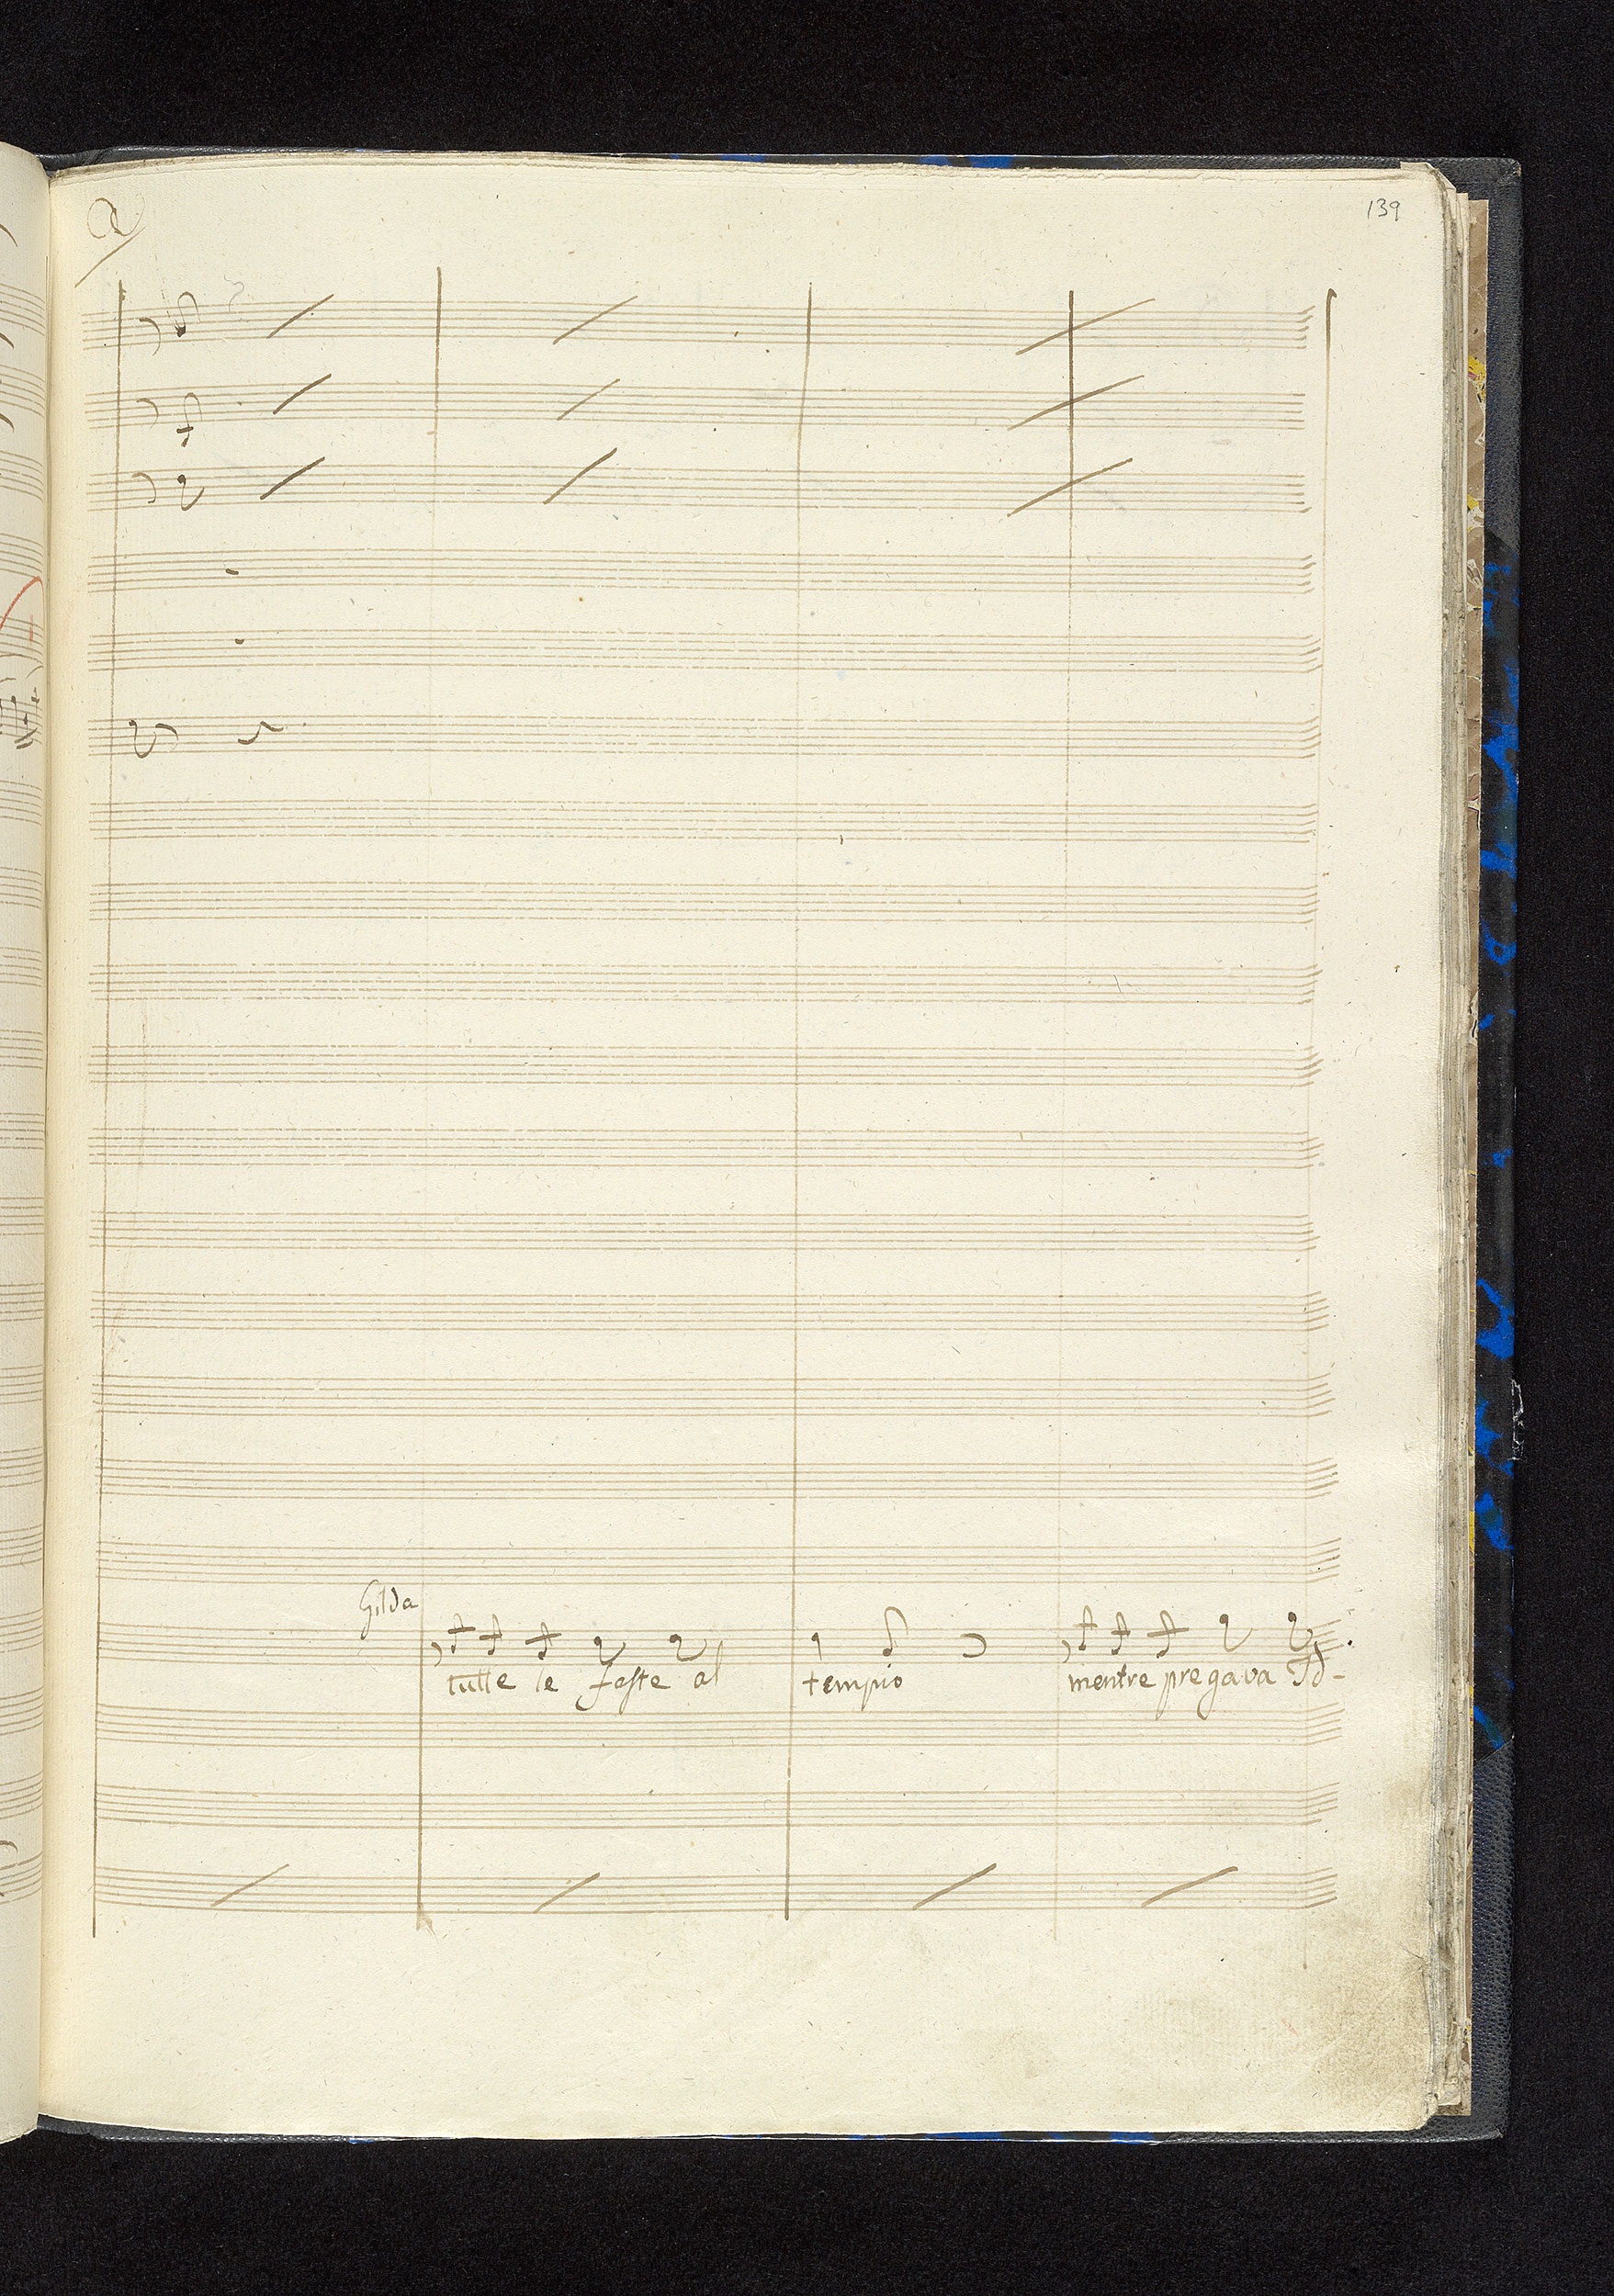 139
Gilda
tutte le feste al tempio mentre pregava Id-